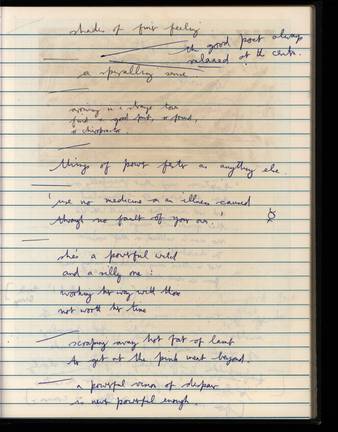 shades of first feeling
the good poet always
relaxed at the centre.
a spiralling sense
arriving in a strange town
find a good pub, or priest,
or chiropractor.
things of power parts as anything else.
'use no medicine on an illness caused
through no fault of your own'
she's a powerful witch
and a silly one :
working her way with those
not worth her time
scraping away hot fat of lamb
to get at the pink meat beyond.
a powerful vision of despair
is never powerful enough.